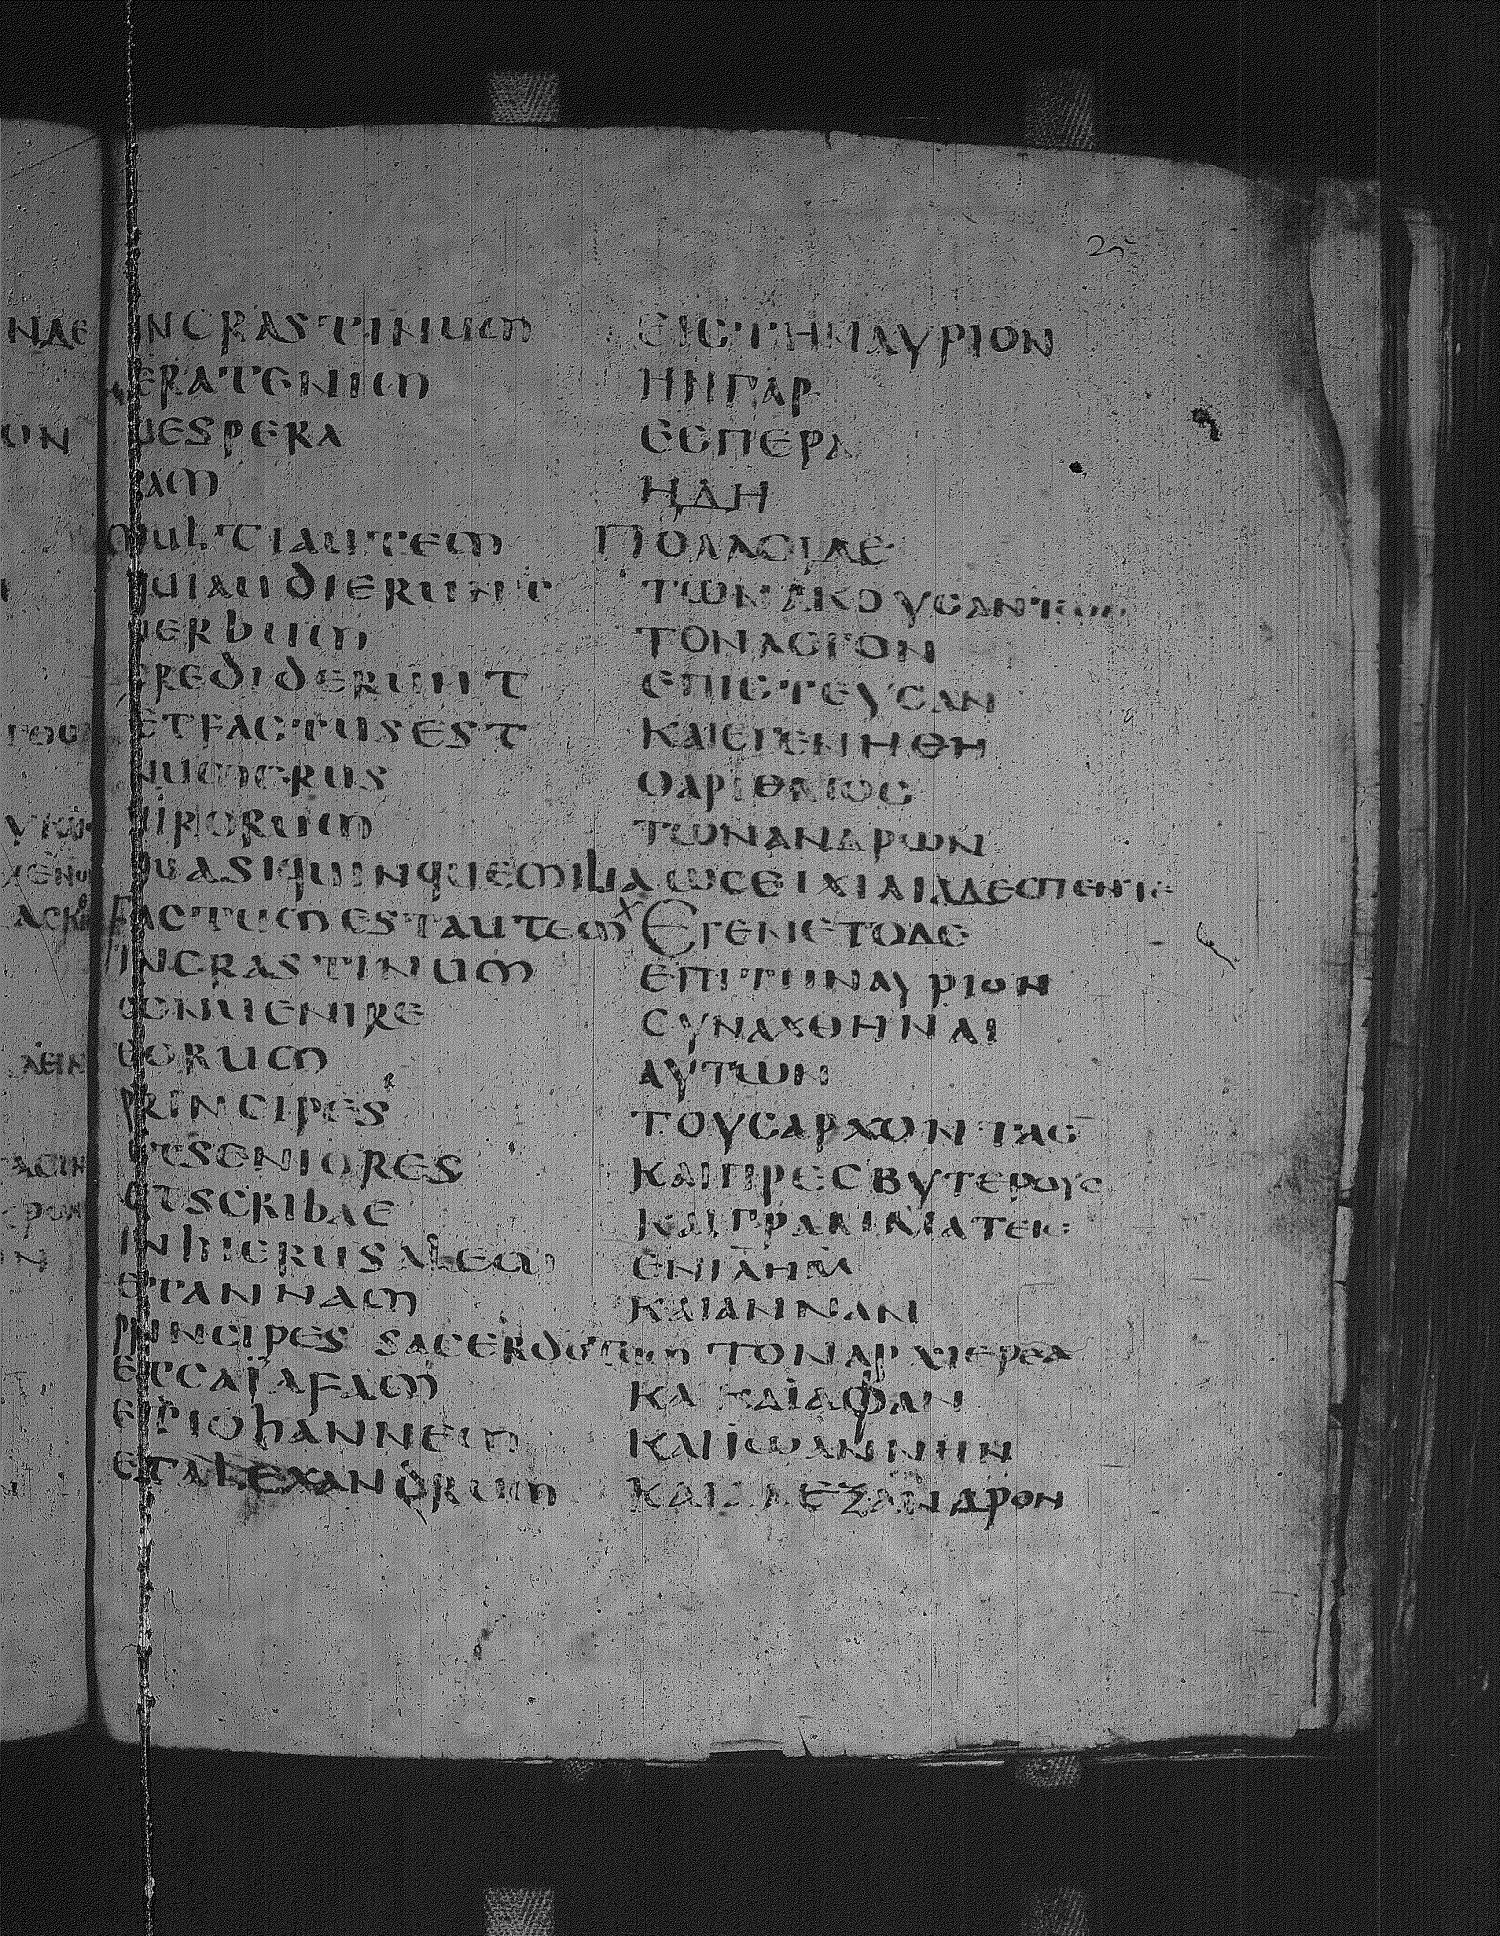 INCRASTINUM ΕΙCΤΗΝΑΥΡΙΟΝ
ERATENIM ΗΝΓΑΡ
UESPERA ΕCΠΕΡΑ
IAM ΗΔΗ
MULTIAUTEM ΠΟΛΛΟΙΔΕ
QUIAUDIERUNT ΤΩΝΑΚΟΥCΑΝΤΩΝ
UERBUM ΤΟΝΛΟΓΟΝ
CREDIDERUNT ΕΠΙCΤΕΥCΑΝ
ETFACTUSEST ΚΑΙΕΓΕΝΗΘΗ
NUMERUS ΟΑΡΙΘΜΟC
UIRORUM ΤΩΝΑΝΔΡΩΝ
QUASIQUINQUEMILIA ΩCΕΙΧΙΛΙΑΔΕCΠΕΝΤΕ
FACTUMESTAUTEM ΕΓΕΝΕΤΟΔΕ
INCRASTINUM ΕΠΙΤΗΝΑΥΡΙΟΝ
CONUENIRE CΥΝΑΧΘΗΝΑΙ
EORUM ΑΥΤΩΝ
PRINCIPES ΤΟΥCΑΡΧΟΝΤΑC
ETSENIORES ΚΑΙΠΡΕCΒΥΤΕΡΟΥC
ETSCRIBAE ΚΑΙΓΡΑΜΜΑΤΕΙC
INHIERUSALEM ΕΝΙΛΗΜ
ETANNAM ΚΑΙΑΝΝΑΝ
PRINCIPES SACERDOTUM ΤΟΝΑΡΧΙΕΡΕΑ
ETCAÏAFAM ΚΑΙΚΑΪΑΦΑΝ
ETIOHANNEM ΚΑΙΪΩΑΝΝΗΝ
ETALEXANDRUM ΚΑΙΑΛΕΞΑΝΔΡΟΝ